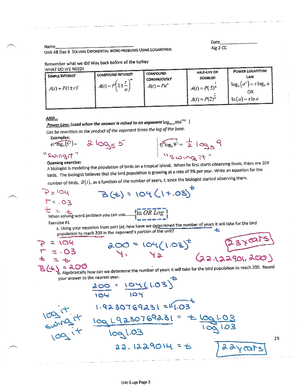 Name Date
Unit 4B Day 8 SOLVING EXPONENTIAL WORD PROBLEMS USING LOGARITHMS Alg 2 CC
Remember what we did Way back before all the turkey
WHAT DO WE NEED!
SIMPLE INTEREST COMPOUND INTEREST COMPOUND CONTINUOUSLY HALF-LIFE OR DOUBLED POWER LOGARITHM LAW
A(t) = P(1 ± r)^t A(t) = Pe^rt A(t) = P(.5)^t A(t) = P(2)^t
OR
ln(a^r) = r ln a
AND...
Power Law: (used when the answer is raised to an exponent
Can be rewritten as the product of the exponent times the log of the base.
Examples:
2 log₃ 5 ½ log₅ 9
"swingit" "swing it"
Opening exercise:
A biologist is modeling the population of birds on a tropical island. When he first starts observing them, there are 104
birds. The biologist believes that the bird population is growing at a rate of 3% per year. Write an equation for the
number of birds, B(t), as a function of the number of years, t, since the biologist started observing them.
P = 104
r = .03
t = t
B(t) = 104(1+.03)^t
When solving word problem you can use ln OR Log
Exercise #1
a. Using your equation from part (a), how have we determined the number of years it will take for the bird
population to reach 200 in the exponent's portion of the unit?
P = 104
r = .03
t = t
B(t) = 200
200 = 104(1.03)^t
Y₁ Y₂
23 years
(22.122901, 200)
b. Algebraically how can we determine the number of years it will take for the bird population to reach 200. Round
your answer to the nearest year.
200 = 104(1.03)^t
104 104
1.923076923 = 1.03^t
log it
swing it
log it
log 1.923076923 = t log 1.03
log 1.03 log 1.03
22.1229014 = t
22 years
29
Page 2